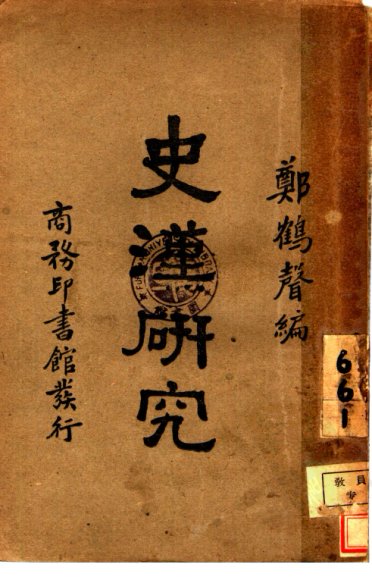 鄭鶴聲編
史漢研究
商務印書館發行
661
員
教